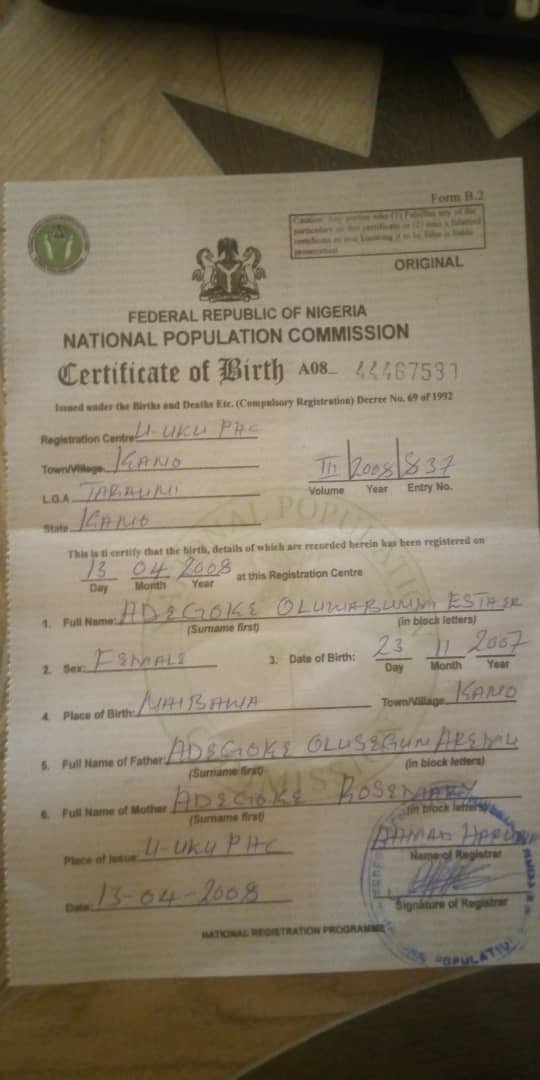 Form B.2
Caution: Any person who (1) Falsifies any of the
particulars on this certificate or (2) uses a falsified
certificate as true knowing it to be false is liable
prosecution
ORIGINAL
FEDERAL REPUBLIC OF NIGERIA
NATIONAL POPULATION COMMISSION
Certificate of Birth A08 44467531
Issued under the Births and Deaths Etc. (Compulsory Registration) Decree No. 69 of 1992
Registration Centre U-UKU PHC
Town/Village KANO
III 2008 837
Volume Year Entry No.
L.G.A TARAUNI
State KANO
This is ti certify that the birth, details of which are recorded herein has been registered on
13 04 2008 at this Registration Centre
Day Month Year
1. Full Name: ADEGOKE OLUWABUNMI ESTHER
(Surname first) (in block letters)
2. Sex: FEMALE 3. Date of Birth: 23 11 2007
Day Month Year
4. Place of Birth: NAIBAWA Town/Village KANO
5. Full Name of Father: ADEGOKE OLUSEGUN AREMU
(Surname first) (in block letters)
6. Full Name of Mother ADEGOKE ROSEMARY
(Surname first) (in block letters)
Place of Issue: U-UKU PHC
AHMAD
Name of Registrar
Date: 13-04-2008
Signature of Registrar
NATIONAL REGISTRATION PROGRAMME